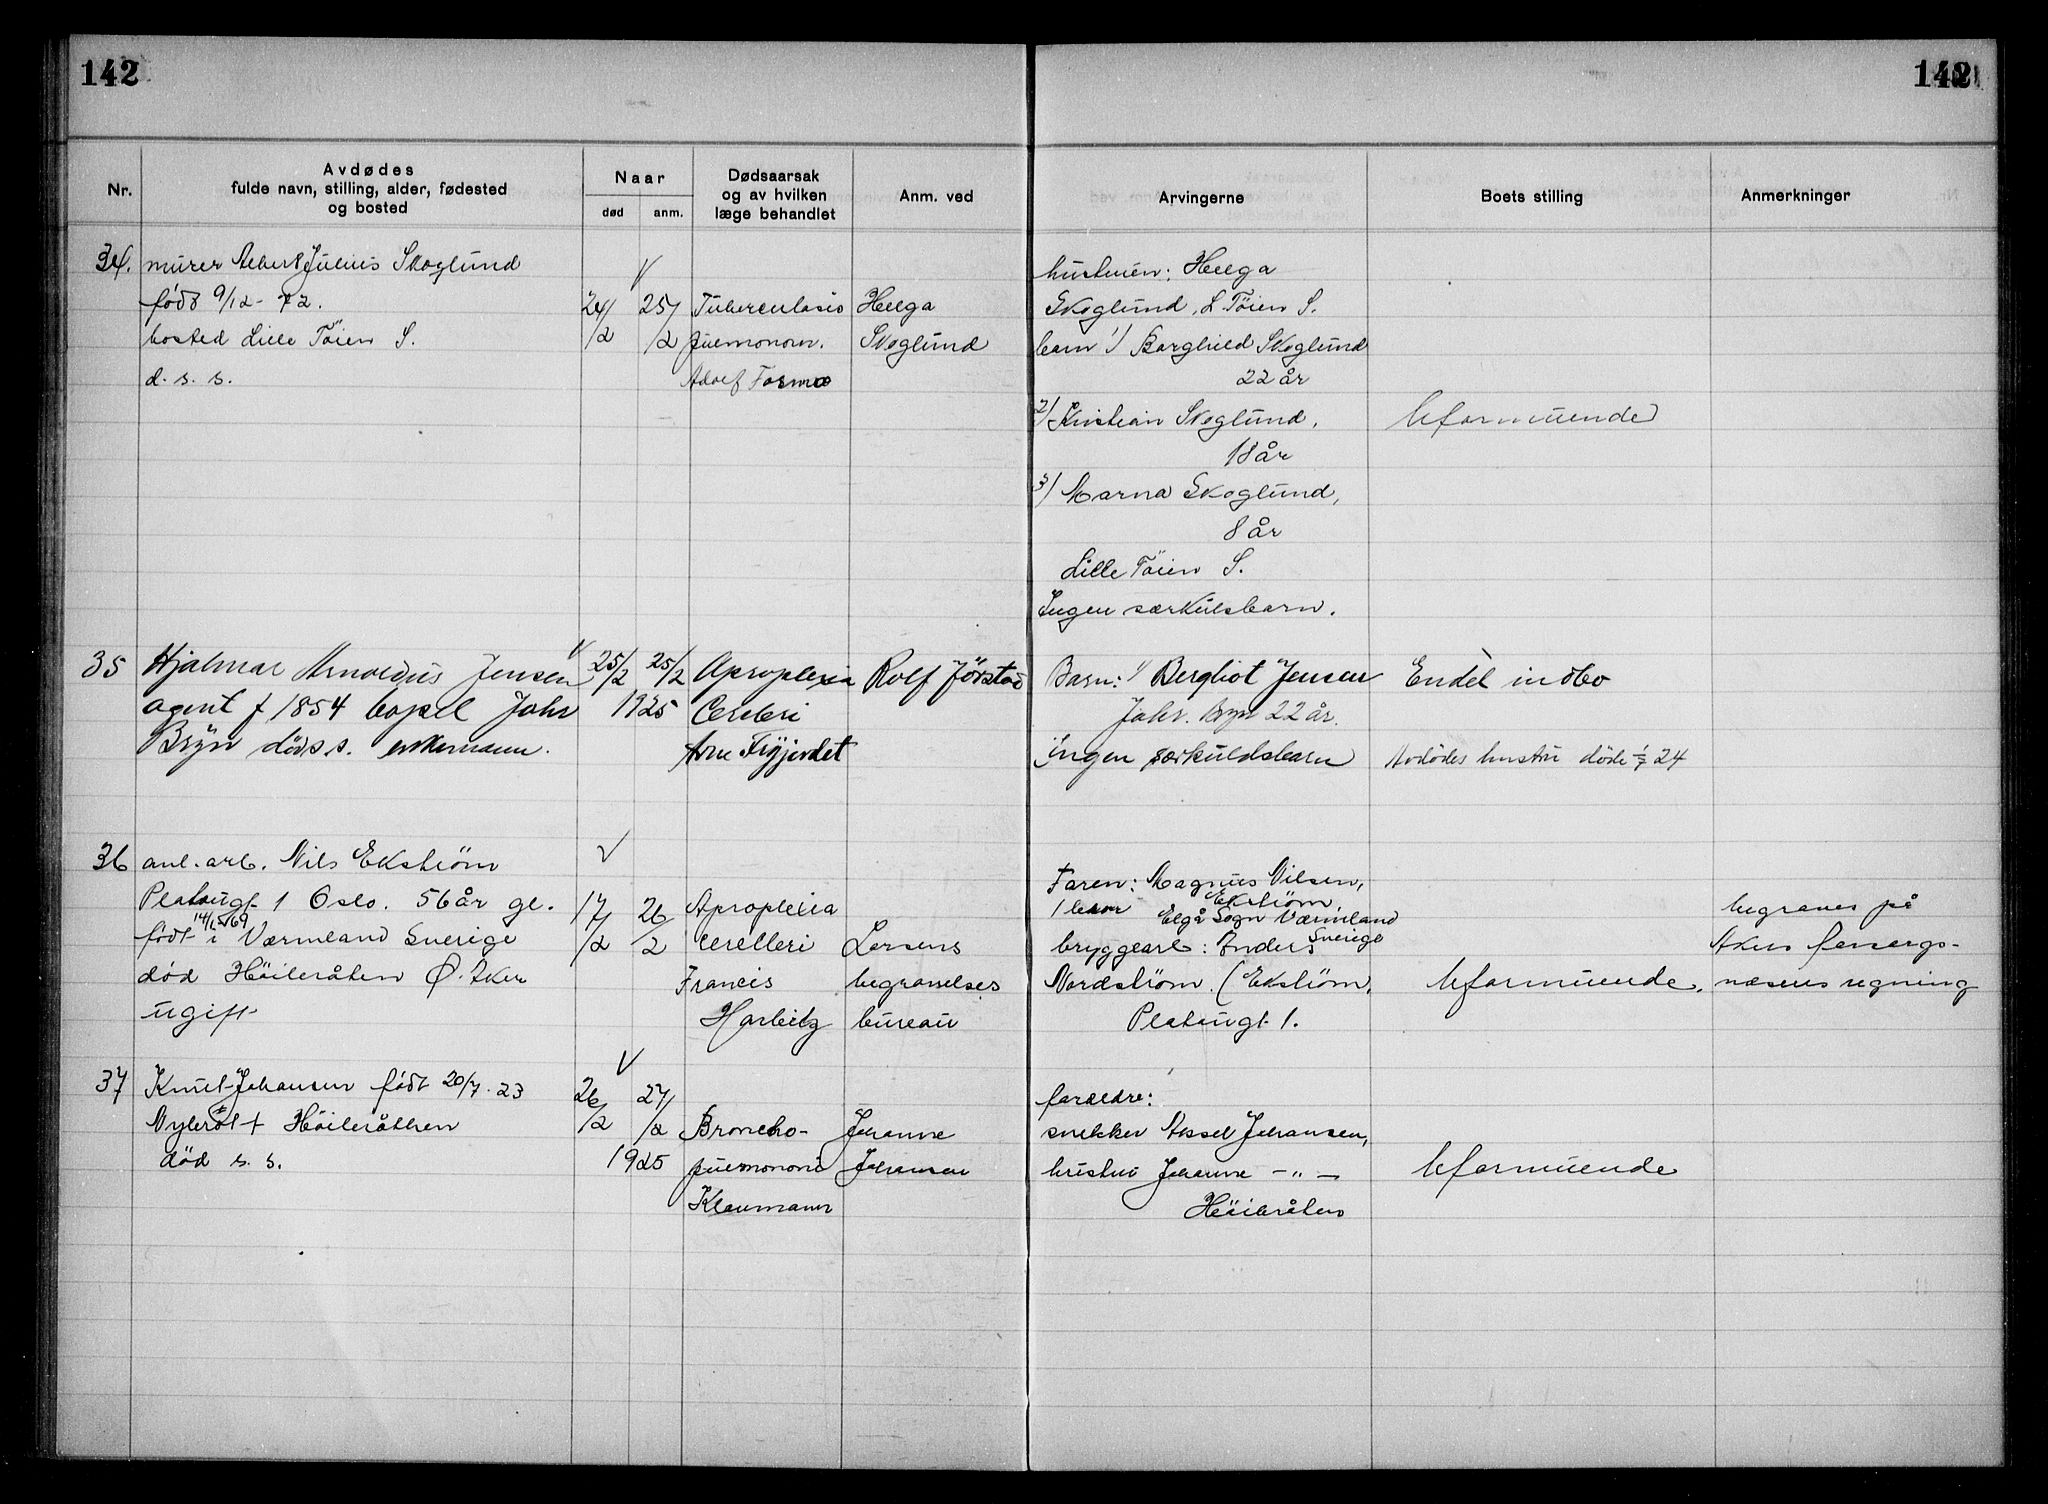 142
142
Nr.
Avdødes
fulde navn, stilling, alder, fødested
og bosted
Naar
død
anm.
Dødsaarsak
og av hvilken
læge behandlet
Anm. ved
Arvingerne
Boets stilling
Anmerkninger
34.
murer Albert Julius Skoglund
født 9/12-72.
bosted Lille Töien S.
d. s. s.
24/2
25/2
Tuberculosis
pulmonom.
Adolf
Helga
Skoglund
hustruen: Helga
Skoglund, L. Töien S.
barn 1/ Borghild Skoglund
22 år
2/ Kristian Skoglund,
18 år
3/ Marna Skoglund,
8 år
Lille Töien S.
Ingen særkulsbarn.
Uformuende
35
Hjalmar Arnoldus Jensen
agent f 1854 bopel Jahr
Bryn død s.s. enkemann.
25/2
25/2
1925
Apoplexia
Cerebri
Arne
Rolf
Barn: 1/ Bergliot Jensen
Jahr. Bryn 22 år.
ingen særkuldsbarn
Endel indbo
Avdödes hustru döde 1/7 24
36
anl. arb. Nils Ekström
Platougt 1 Oslo. 56 år gl.
født i Værmland Sverige
död Höibråten Ø. Aker
ugift
17/2
26/2
Apoplexia
cerebri
Francis
Harbitz
Larsens
begravelses
bureau
Faren: Magnus Nilsen,
Ekström
Elgå Sogn Værmland
Sverige
bryggearb: Anders
Nordström (Ekström,
Platougt 1.
Uformuende.
begraves på
Akers forsorgs-
næsens regning
37
Knut Johansen født 20/7-23
Höibråthen
död s. s.
26/2
27/2
1925
Broncho-
pnemononi
Klaumann
Johanne
Johansen
forældre:
snekker Aksel Johansen,
hustru Johanne -"-
Höibråten
Uformuende